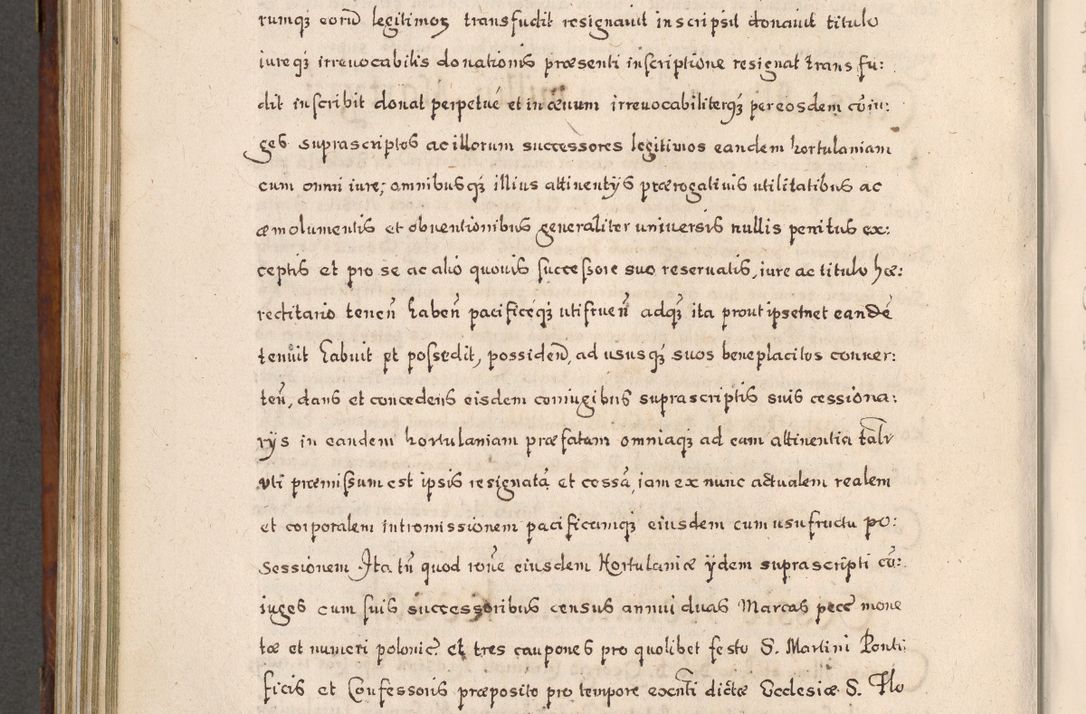 rumq; eorū legitimoꝝ transfudit resignauit inscripsit donauit titulo
iureq; irreuocabilis donationis præsenti inscriptione resignat trans fu:
dit inscribit donat perpetue et in æuum irreuocabiliterq; per eosdem cōiu:
ges suprascriptos ac illorum successores legitimos eandem hortulaniam
cum omni iure; omnibusq; illius attinentÿs prærogatiuis utilitatibus ac
æmolumentis et obuentionibus generaliter uniuersis nullis penitus ex:
ceptis et pro se ac alio quouis successore suo reseruatis, iure ac titulo hæ:
rectitario tenen̄ haben̄ pacificéq; utifruen̄ adq; ita prout ipsemet eandē
tenuit habuit et possedit, possiden̄, ad ususq; suos beneplacitos conuer:
ten̄, dans et concedens eisdem coniugibus suprascriptis suis cessiona:
rÿs in eandem hortulaniam præfatam omniaq; ad eam attinentia talr
vti præmissum est ipsis resignatā et cessā, iam ex nunc actualem realem
et corporalem intromissionem pacificamq; eiusdem cum usufructu po:
sessionem Ita tn̄ quod rōne eiusdem Hortulaniæ ÿdem suprascripti cō:
iuges cum suis successoribus census annui duas Marcas pecc mone
tæ et numeri polonic? et tres caupones pro quolibet festo S. Martini Ponti:
ficis et Confessoris præposito pro tempore exnti dictæ Ecclesiæ S. Flo